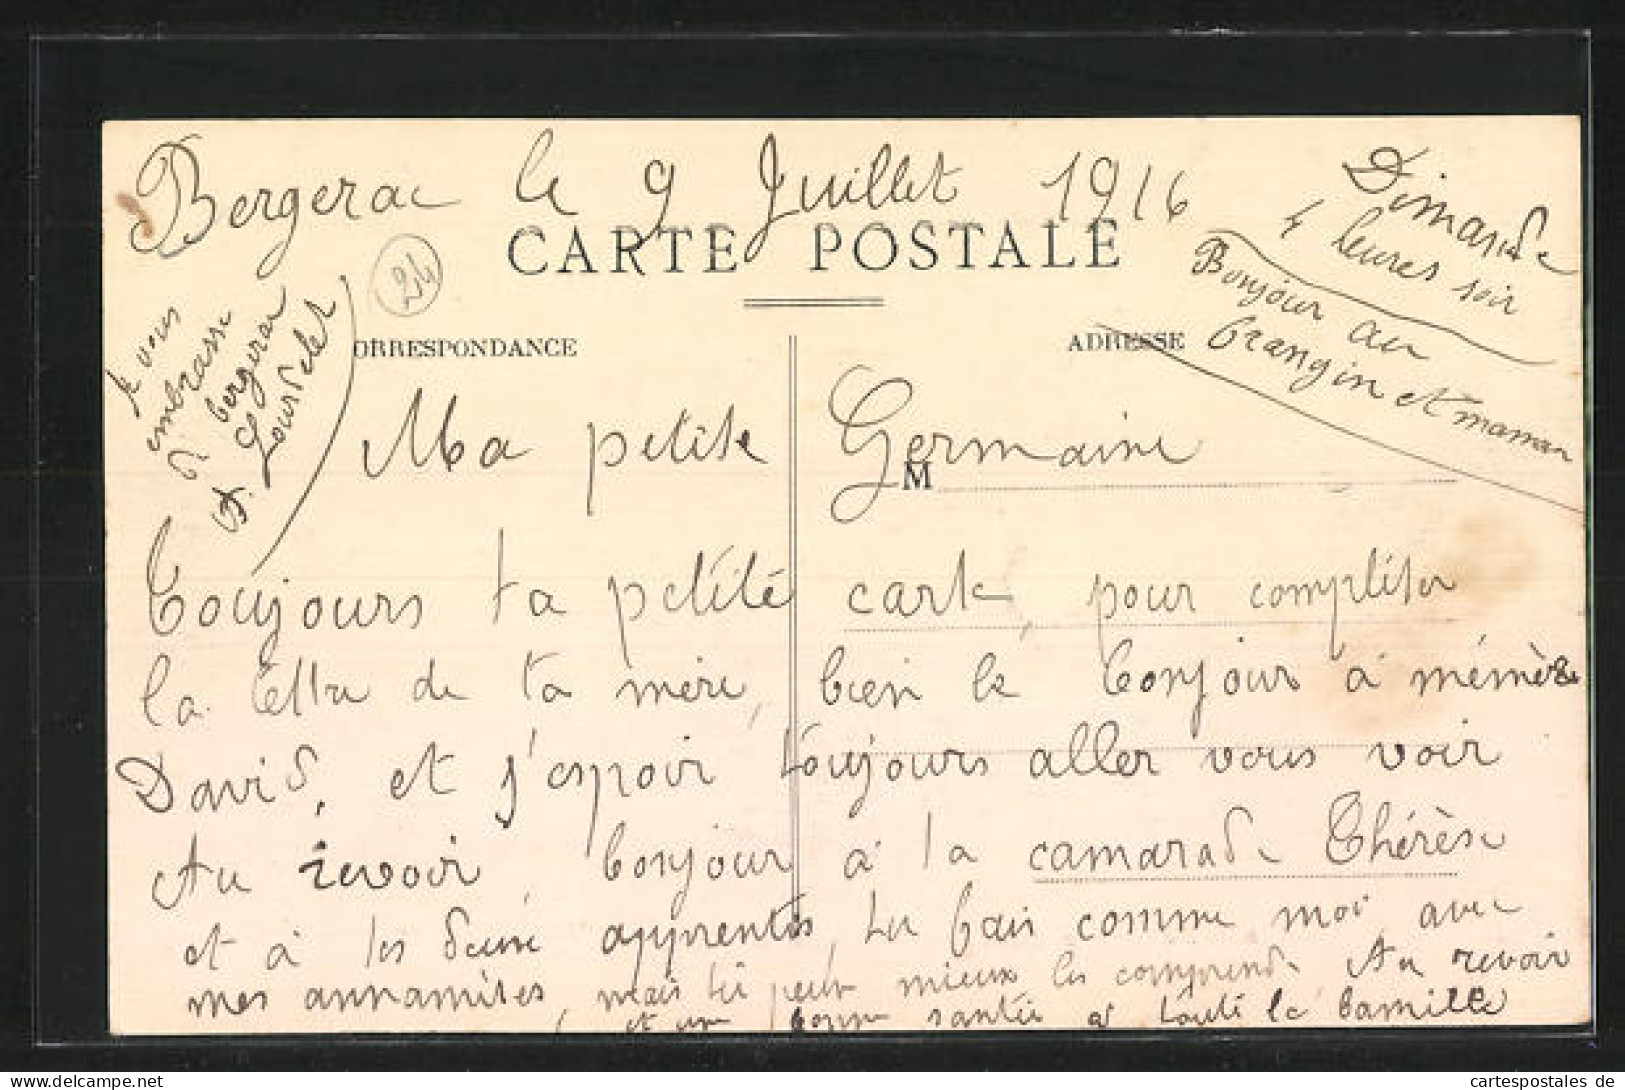 Bergerac le 9 Juillet 1916
Dimande
4 heures soir
CARTE POSTALE
24
Bonjour au
frangin et maman
Je vous
embrasse
di bergerac
A.
ORRESPONDANCE
ADRESSE
Ma petite Germaine
M
Toujours ta petité carte, pour compliter
la lettre de ta mère, bien le bonjour à mémère
David, et j'espoir toujours aller vous voir
Au revoir, bonjour à la camarade Thérèse
et à les deux apprentis, tu fais comme moi avec
mes annamites, mais tu peux mieux les comprend. Au revoir
et une bonne santée a touté la famille
cartespostales de